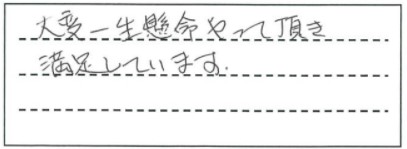 大変一生懸命やって頂き
満足しています.